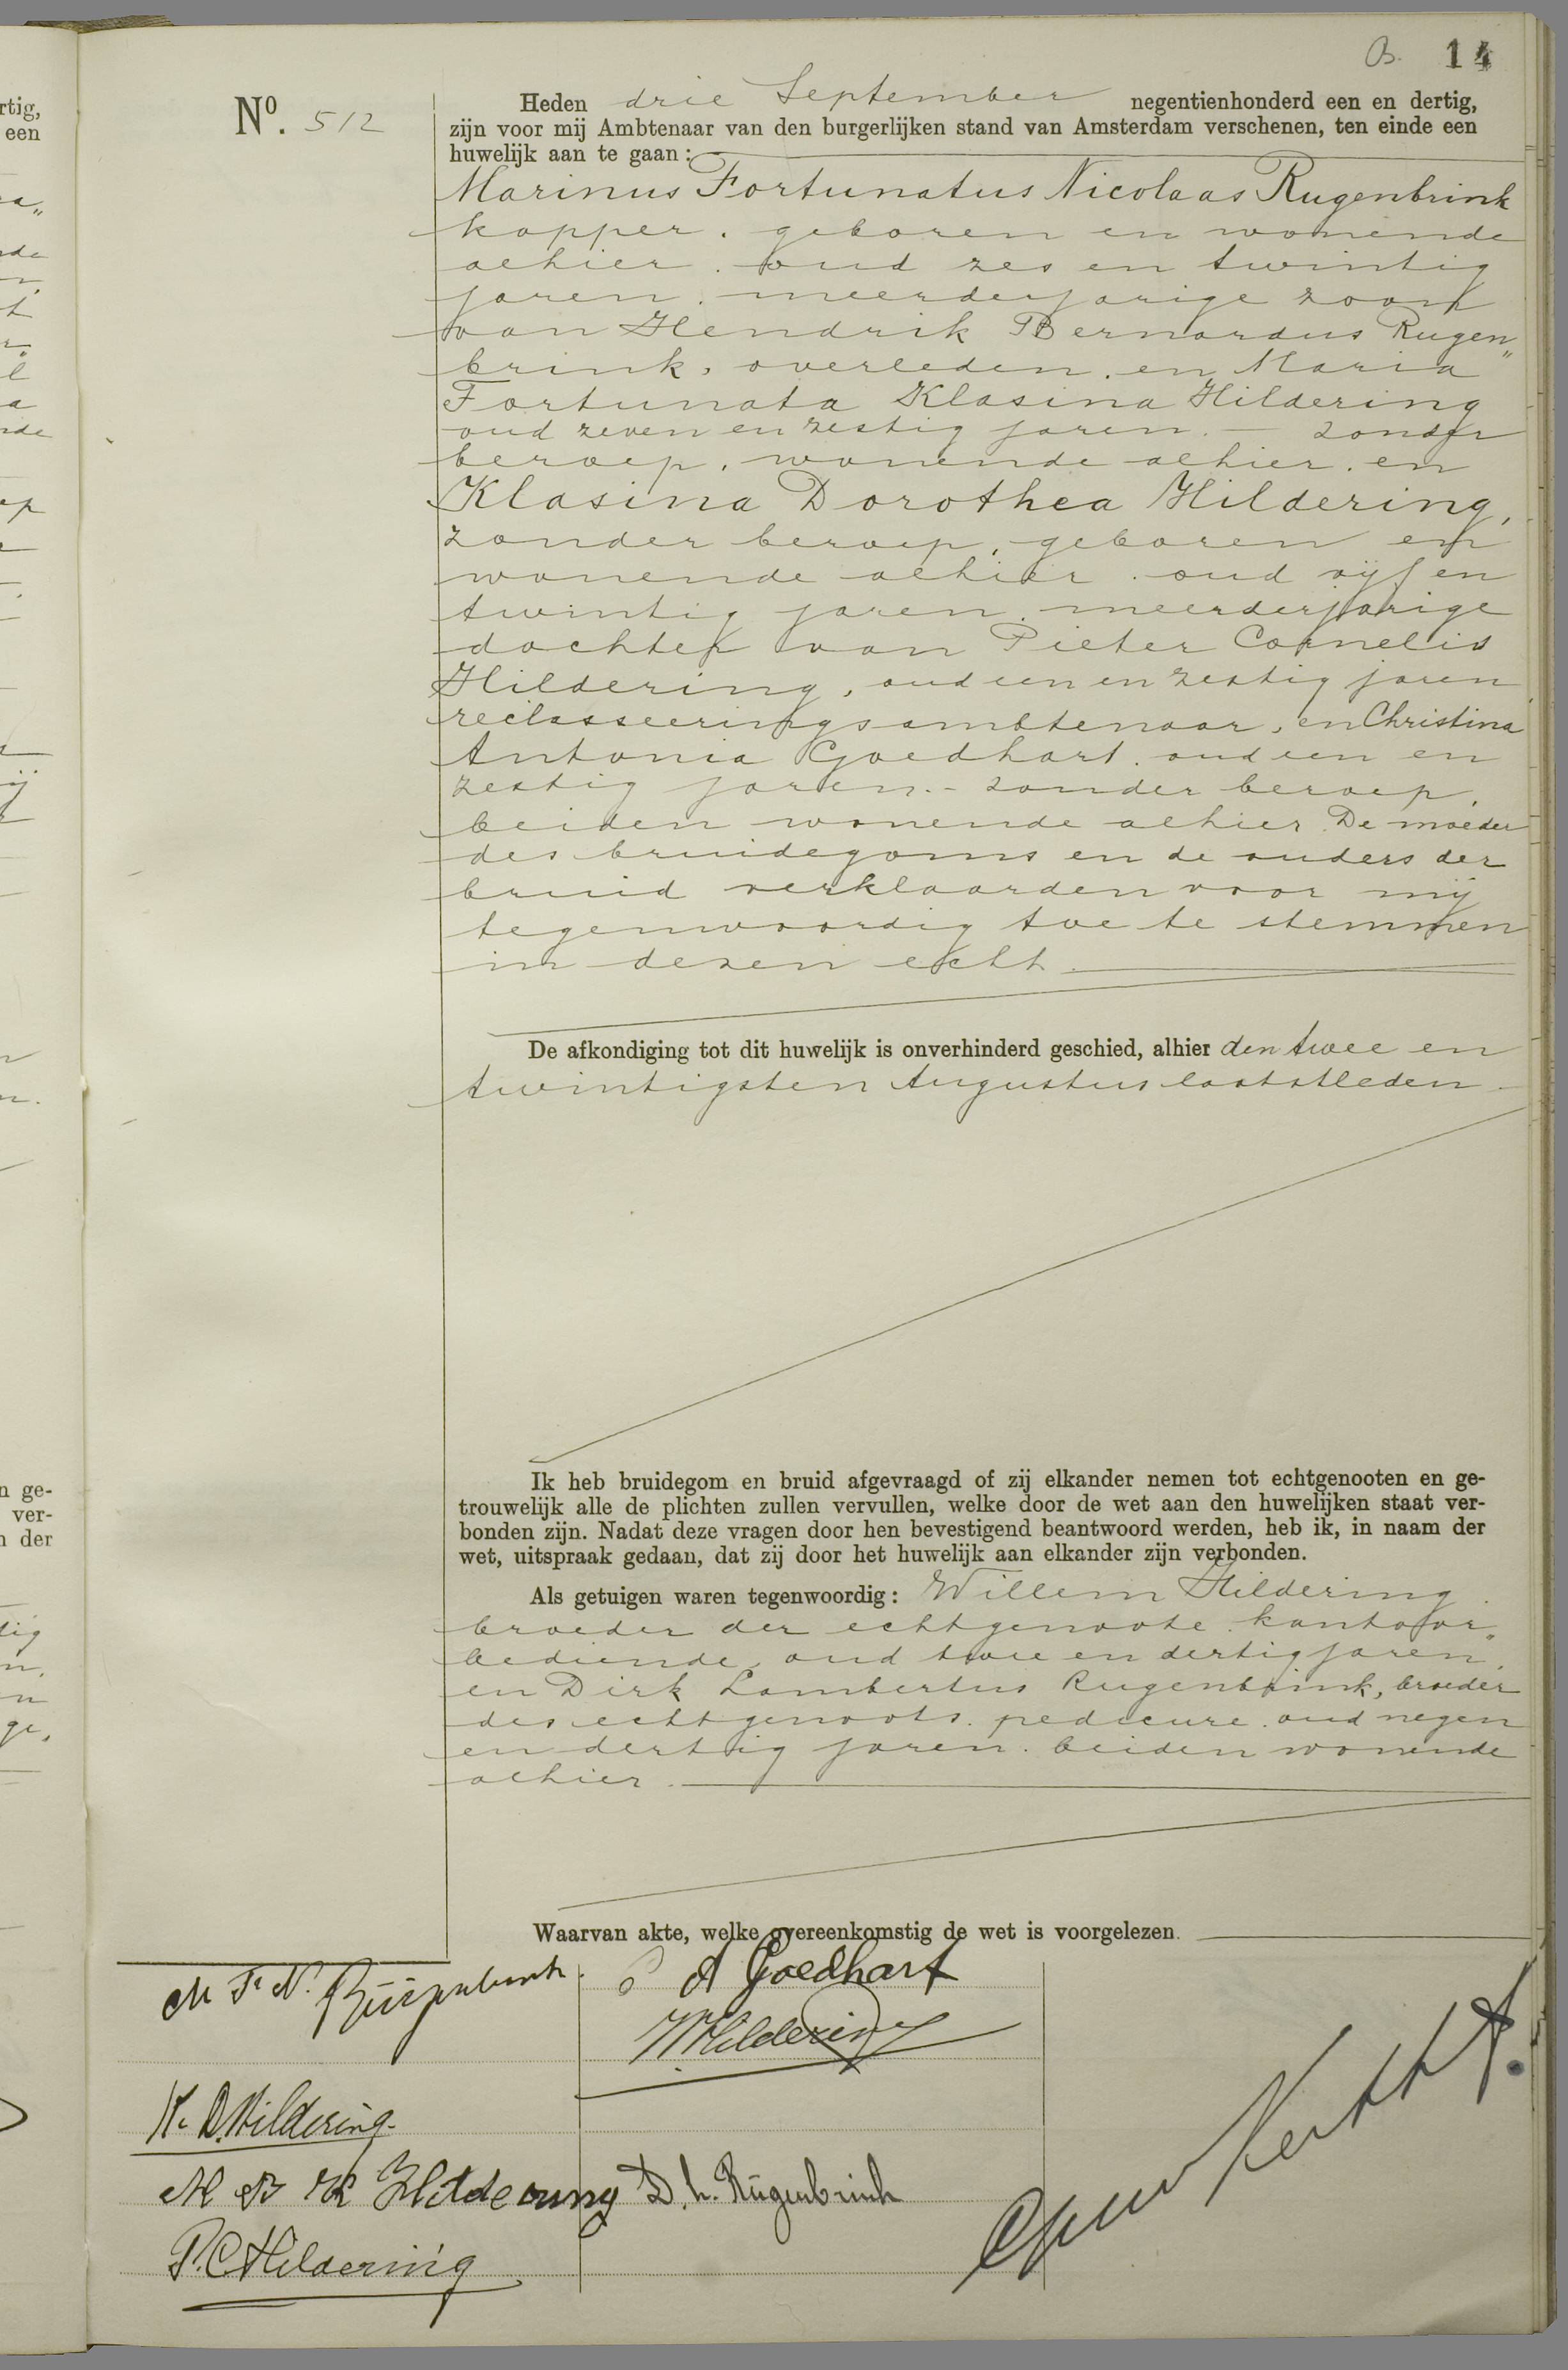 B. 14
No. 512
Heden drie September negentienhonderd een en dertig,
zijn voor mij Ambtenaar van den burgerlijken stand van Amsterdam verschenen, ten einde een
huwelijk aan te gaan:
Marinus Fortunatus Nicolaas Rugenbrink
kapper, geboren en wonende
alhier, oud zes en twintig
jaren, meerderjarige zoon
van Hendrik Bernardus Rugen„
brink, overleden, en Maria
Fortunata Klasina Hildering
oud zeven en zestig jaren. — zonder
beroep, wonende alhier, en
Klasina Dorothea Hildering,
zonder beroep, geboren en
wonende alhier, oud vijf en
twintig jaren, meerderjarige
dochter van Pieter Cornelis
Hildering, oud een en zestig jaren,
reclasseeringsambtenaar, en Christina
Antonia Goedhart, oud een en
zestig jaren. - zonder beroep,
beiden wonende alhier. De moeder
des bruidegoms en de ouders der
bruid verklaarden voor mij
tegenwoordig toe te stemmen
in dezen echt.
De afkondiging tot dit huwelijk is onverhinderd geschied, alhier den twee en
twintigsten Augustus laatstleden.
Ik heb bruidegom en bruid afgevraagd of zij elkander nemen tot echtgenooten en ge-
trouwelijk alle de plichten zullen vervullen, welke door de wet aan den huwelijken staat ver-
bonden zijn. Nadat deze vragen door hen bevestigend beantwoord werden, heb ik, in naam der
wet, uitspraak gedaan, dat zij door het huwelijk aan elkander zijn verbonden.
Als getuigen waren tegenwoordig: Willem Hildering
broeder der echtgenoote, kantoor„
bediende, oud twee en dertig jaren,
en Dirk Lambertus Rugenbrink, broeder
des echtgenoots, pedicure, oud negen
en dertig jaren, beiden wonende
alhier.
Waarvan akte, welke overeenkomstig de wet is voorgelezen.
M. F. N. Rügenbrink.
K. D. Hildering.
Hildering
P. C. Hildering
A Goedhart
W Hildering
D. L. Rügenbrink